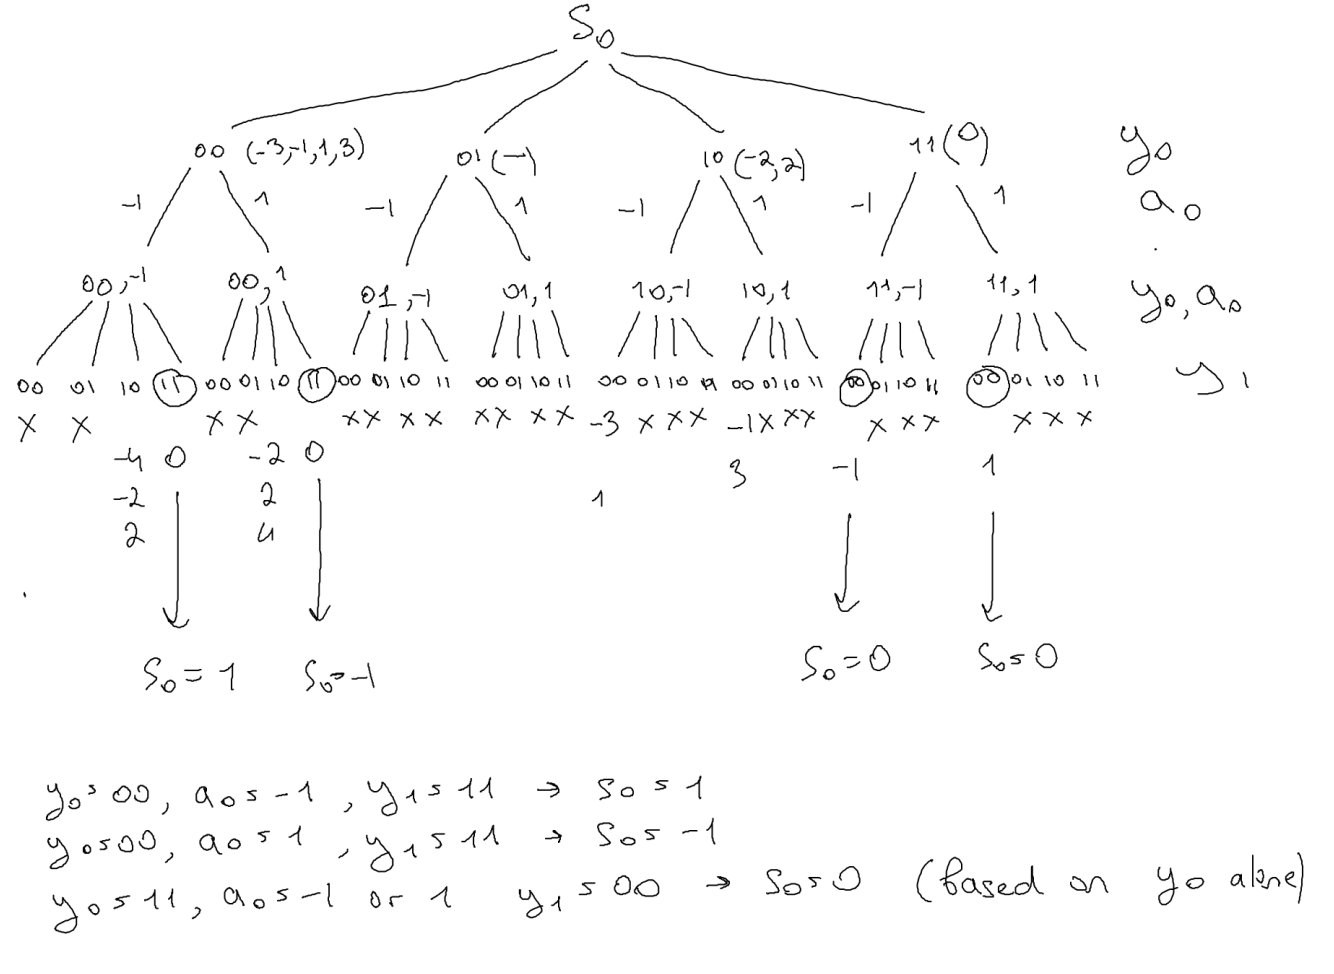 S₀
00 (-3,-1,1,3) 01 (-) 10 (-2,2) 11 (0) y₀
-1 1 -1 1 -1 1 -1 1 a₀
00,-1 00,1 01,-1 01,1 10,-1 10,1 11,-1 11,1 y₀,a₀
00 01 10 11 00 01 10 11 00 01 10 11 00 01 10 11 00 01 10 11 00 01 10 11 00 01 10 11 00 01 10 11 y₁
X X X X X X X X X X X X -3 X X X -1 X X X X X X X X X
-4 0 -2 0 3 -1 1
-2 2 1
2 4
S₀ = 1 S₀=-1 S₀=0 S₀=0
y₀=00, a₀=-1, y₁=11 → S₀=1
y₀=00, a₀=1, y₁=11 → S₀=-1
y₀=11, a₀=-1 or 1 y₁=00 → S₀=0 (based on y₀ alone)